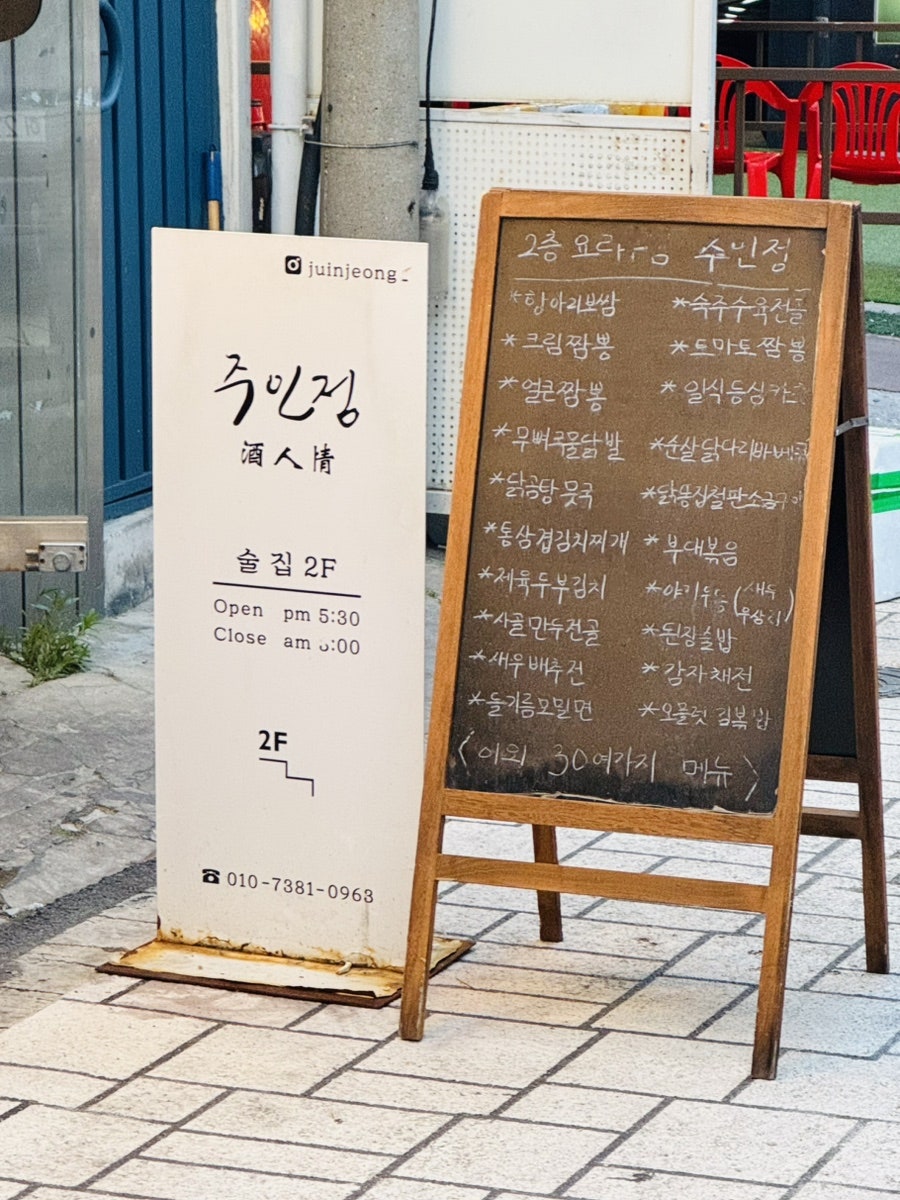 juinjeong_
주인정
酒人情
술집 2F
Open pm 5:30
Close am :00
2F
010-7381-0963
2층 주인정
*항아리보쌈
*크림짬뽕
*얼큰짬뽕
*무뼈국물닭발
*닭곰탕 뭇국
*통삼겹김치찌개
*제육두부김치
*사골만두전골
*새우배추전
*들기름모밀면
*숙주수육전골
*토마토짬뽕
*일식등심카츠
*순살닭다리바베큐
*부대볶음
*야끼우동
*된장술밥
*감자채전
*오믈렛김볶밥
<이외 30여가지 메뉴>